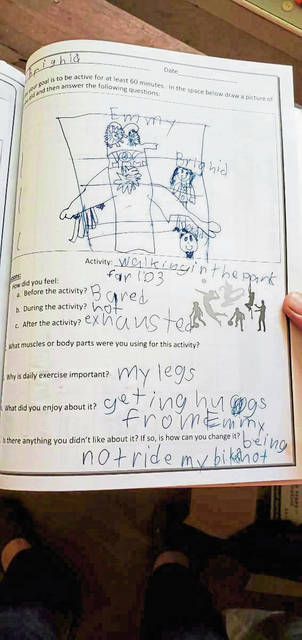 Brighid
Date
your goal is to be active for at least 60 minutes. In the space below draw a picture of
did and then answer the following questions:
Emmy
Brighid
Activity: walking in the park
for 103
How did you feel:
a. Before the activity? Bored
b. During the activity? hot
c. After the activity? exhausted
What muscles or body parts were you using for this activity?
Why is daily exercise important? my legs
What did you enjoy about it? geting hugs
from Emmy
Is there anything you didn't like about it? If so, is how can you change it? being
not ride my bike hot